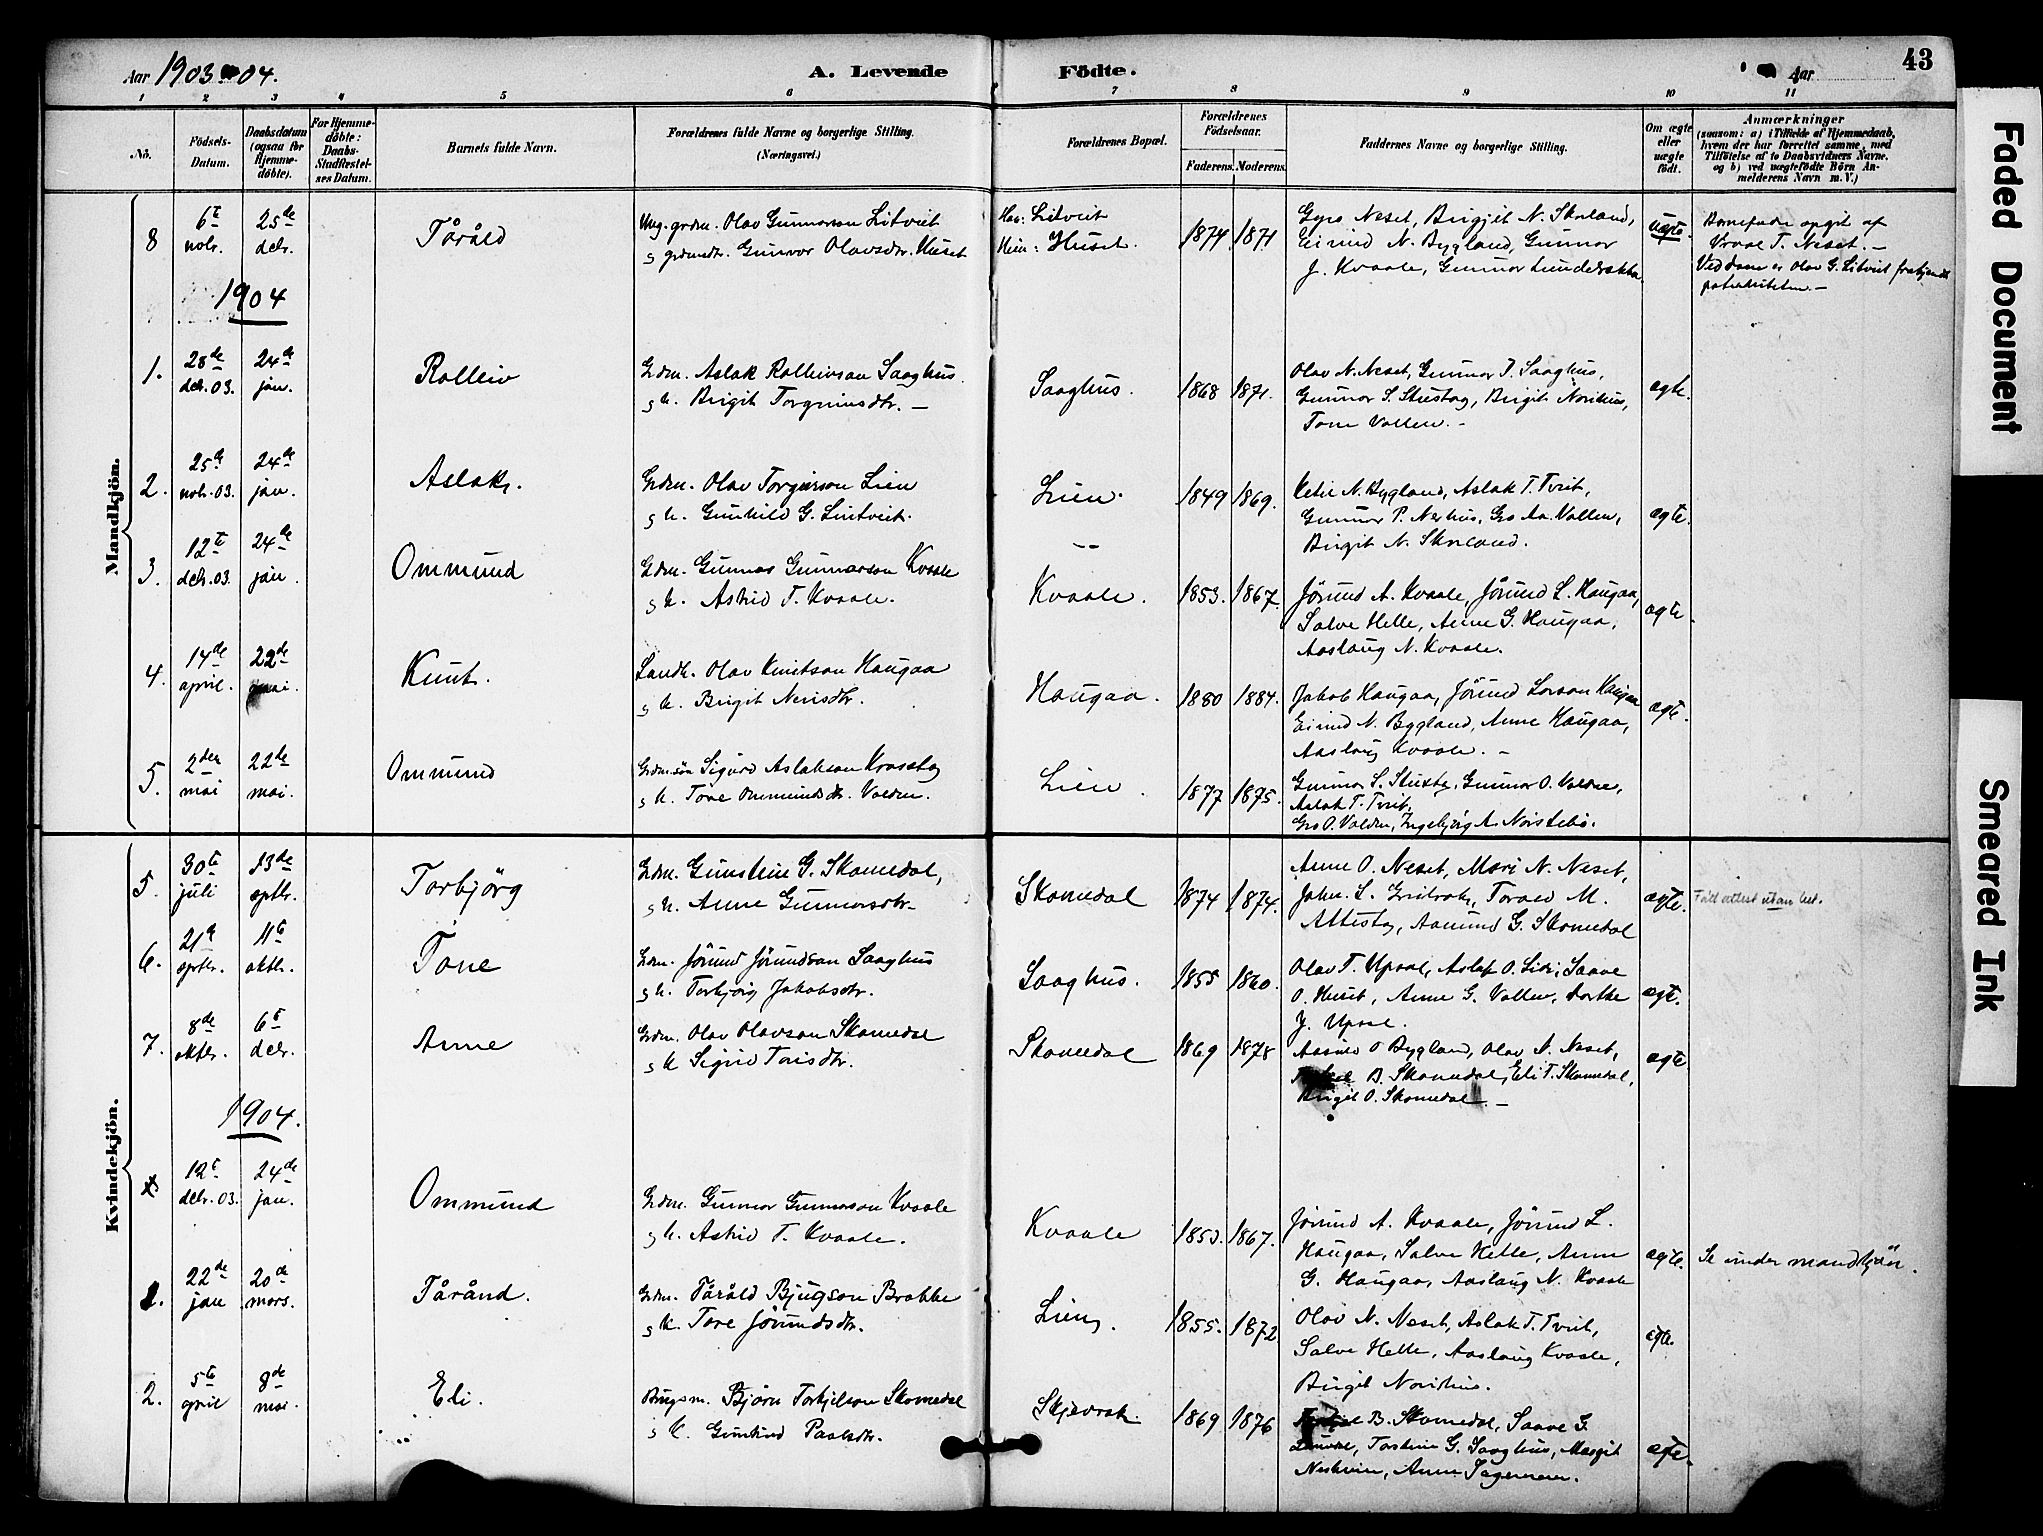 Aar 1903-04.
A. Levende Födte.
Aar
43
1 2 3 4 5 6 7 8 9 10 11
No.
Födsels-Datum.
Daabsdatum (ogsaa for Hjemme-döbte).
For Hjemme-döbte: Daabs-Stadfæstel-ses Datum.
Barnets fulde Navn.
Forældrenes fulde Navne og borgerlige Stilling. (Næringsvei.)
Forældrenes Bopæl.
Forældrenes Födselsaar.
Faderens. Moderens.
Faddernes Navne og borgerlige Stilling.
Om ægte eller uægte födt.
Anmærkninger
(saasom: a) i Tilfælde af Hjemmedaab,
hvem der har forrettet samme, med
Tilföielse af to Daabsvidners Navne,
og b) ved uægtefödte Börn An-
melderens Navn m. V.)
Mandkjön.
8 6te novbr. 25de debr. Tåråld
Ung. grdm. Olav Gunnarson Litveit
g grdmdtr. Gunvor Olavsdtr. Huset
Han: Litveit
Hun: Huset.
1874 1871
Gyro Neset, Birgit N. Skreland,
Eivind N. Bygland, Gunnar
J. Kvaale,
uegte.
Barnefader opgit af
Vraal T. Neset. –
Ved dom er Olav G. Litveit frakjendt
paterniteten. –
1904
1. 28de debr. 03. 24de jan. Rolleiv
Grdm. Aslak Rolleivson Saaghus.
g h. Birgit Torgrimsdtr. –
Saaghus. 1868 1871.
Olav N. Neset, Gunnar J. Saaghus,
Gunnar S. Stustøg, Birgit Norihus,
Tone Vollen. –
egte.
2. 25de novbr. 03. 24de jan. Aslak.
Grdm. Olav Torgierson Lien
g h. Gunhild G. Lintveit.
Lien. 1849 1869.
Ketil N. Bygland, Aslak T. Tveit,
Gunnar P. Neshus, Gro Aa. Vollen,
Birgit N. Skreland.
egte.
3. 12te debr. 03. 24de jan. Ommund
Grdm. Gunnar Gunnarson Kvaale
g h. Astrid T. Kvaale.
Kvaale. 1853. 1867.
Jørund A. Kvaale, Jørund L. Haugaa,
Salve Helle, Anne G. Haugaa,
Aaslaug N. Kvaale.
egte.
4. 14de april. 22de mai. Knut.
Landh. Olav Knutson Haugaa
g h. Birgit Nerisdtr.
Haugaa. 1880 1884.
Jakob Haugaa, Jørund Larson Haugaa
Eivind N. Bygland, Anne Haugaa,
Aaslaug Kvaale. –
egte.
5. 2den mai 22de mai. Ommund
Grdm.søn Sigurd Aslakson
g h. Tone Ommundsdtr. Valden.
Lien. 1877 1875.
Gunnar S. Gunnar O. Valden,
Aslak T. Tveit,
Gro O. Valden, Ingebjørg A. Norstebø.
Kvindekjön.
5. 30te juli 13de sptbr. Torbjörg
Grdm. Gunstein G. Skomedal,
g h. Anne Gunnarsdtr.
Skomedal 1874 1874.
Anne O. Neset, Mari N. Neset,
John. S. Torald M.
Aamund G. Skomedal
egte.
Fød attest utan bet.
6. 21de sptbr. 11te oktbr. Tone
Grdm. Jørund Jørundson Saaghus
g h. Torbjörg Jakobsdtr.
Saaghus. 1855 1860.
Olav T. Upsal, Aslak O. Lid, Saave
O. Huset, Anne G. Vollen, Dorthe
J. Upsal.
egte.
7. 8de oktbr. 6te debr. Anne
Grdm. Olav Olavson Skomedal
g h Sigrid Torisdtr.
Skomedal 1869 1878
Aasuld O Bygland, Olav N. Neset,
B. Skomedal, Eli T. Skomedal,
Birgit O. Skomedal. –
egte
1904.
12te debr. 03. 24de jan. Ommund
Grdm. Gunnar Gunnarson Kvaale
g h. Astrid T. Kvaale.
Kvaale 1853. 1867.
Jørund A. Kvaale, Jørund L.
Haugaa, Salve Helle, Anne
G. Haugaa, Aaslaug N. Kvaale
egte.
Se under mandkjön.
1. 22de jan 20de mars. Tårånd.
Grdm. Tåråld Bjugson Brokke
g h. Tore Jørundsdtr.
Lien. 1855. 1872
Olav N. Neset, Aslak T. Tveit,
Salve Helle, Aaslaug Kvaale,
Birgit Norihus.
egte.
2. 5te april 8de mai. Eli.
Brugsm. Bjørn Torkjelson Skomedal
g h. Gunhild Paalsdtr.
Skjevrak. 1869 1876
B. Skomedal, Saave G.
Torstein G. Saaghus, Margit
Neskvien, Anne
egte.
Faded Document
Smeared Ink